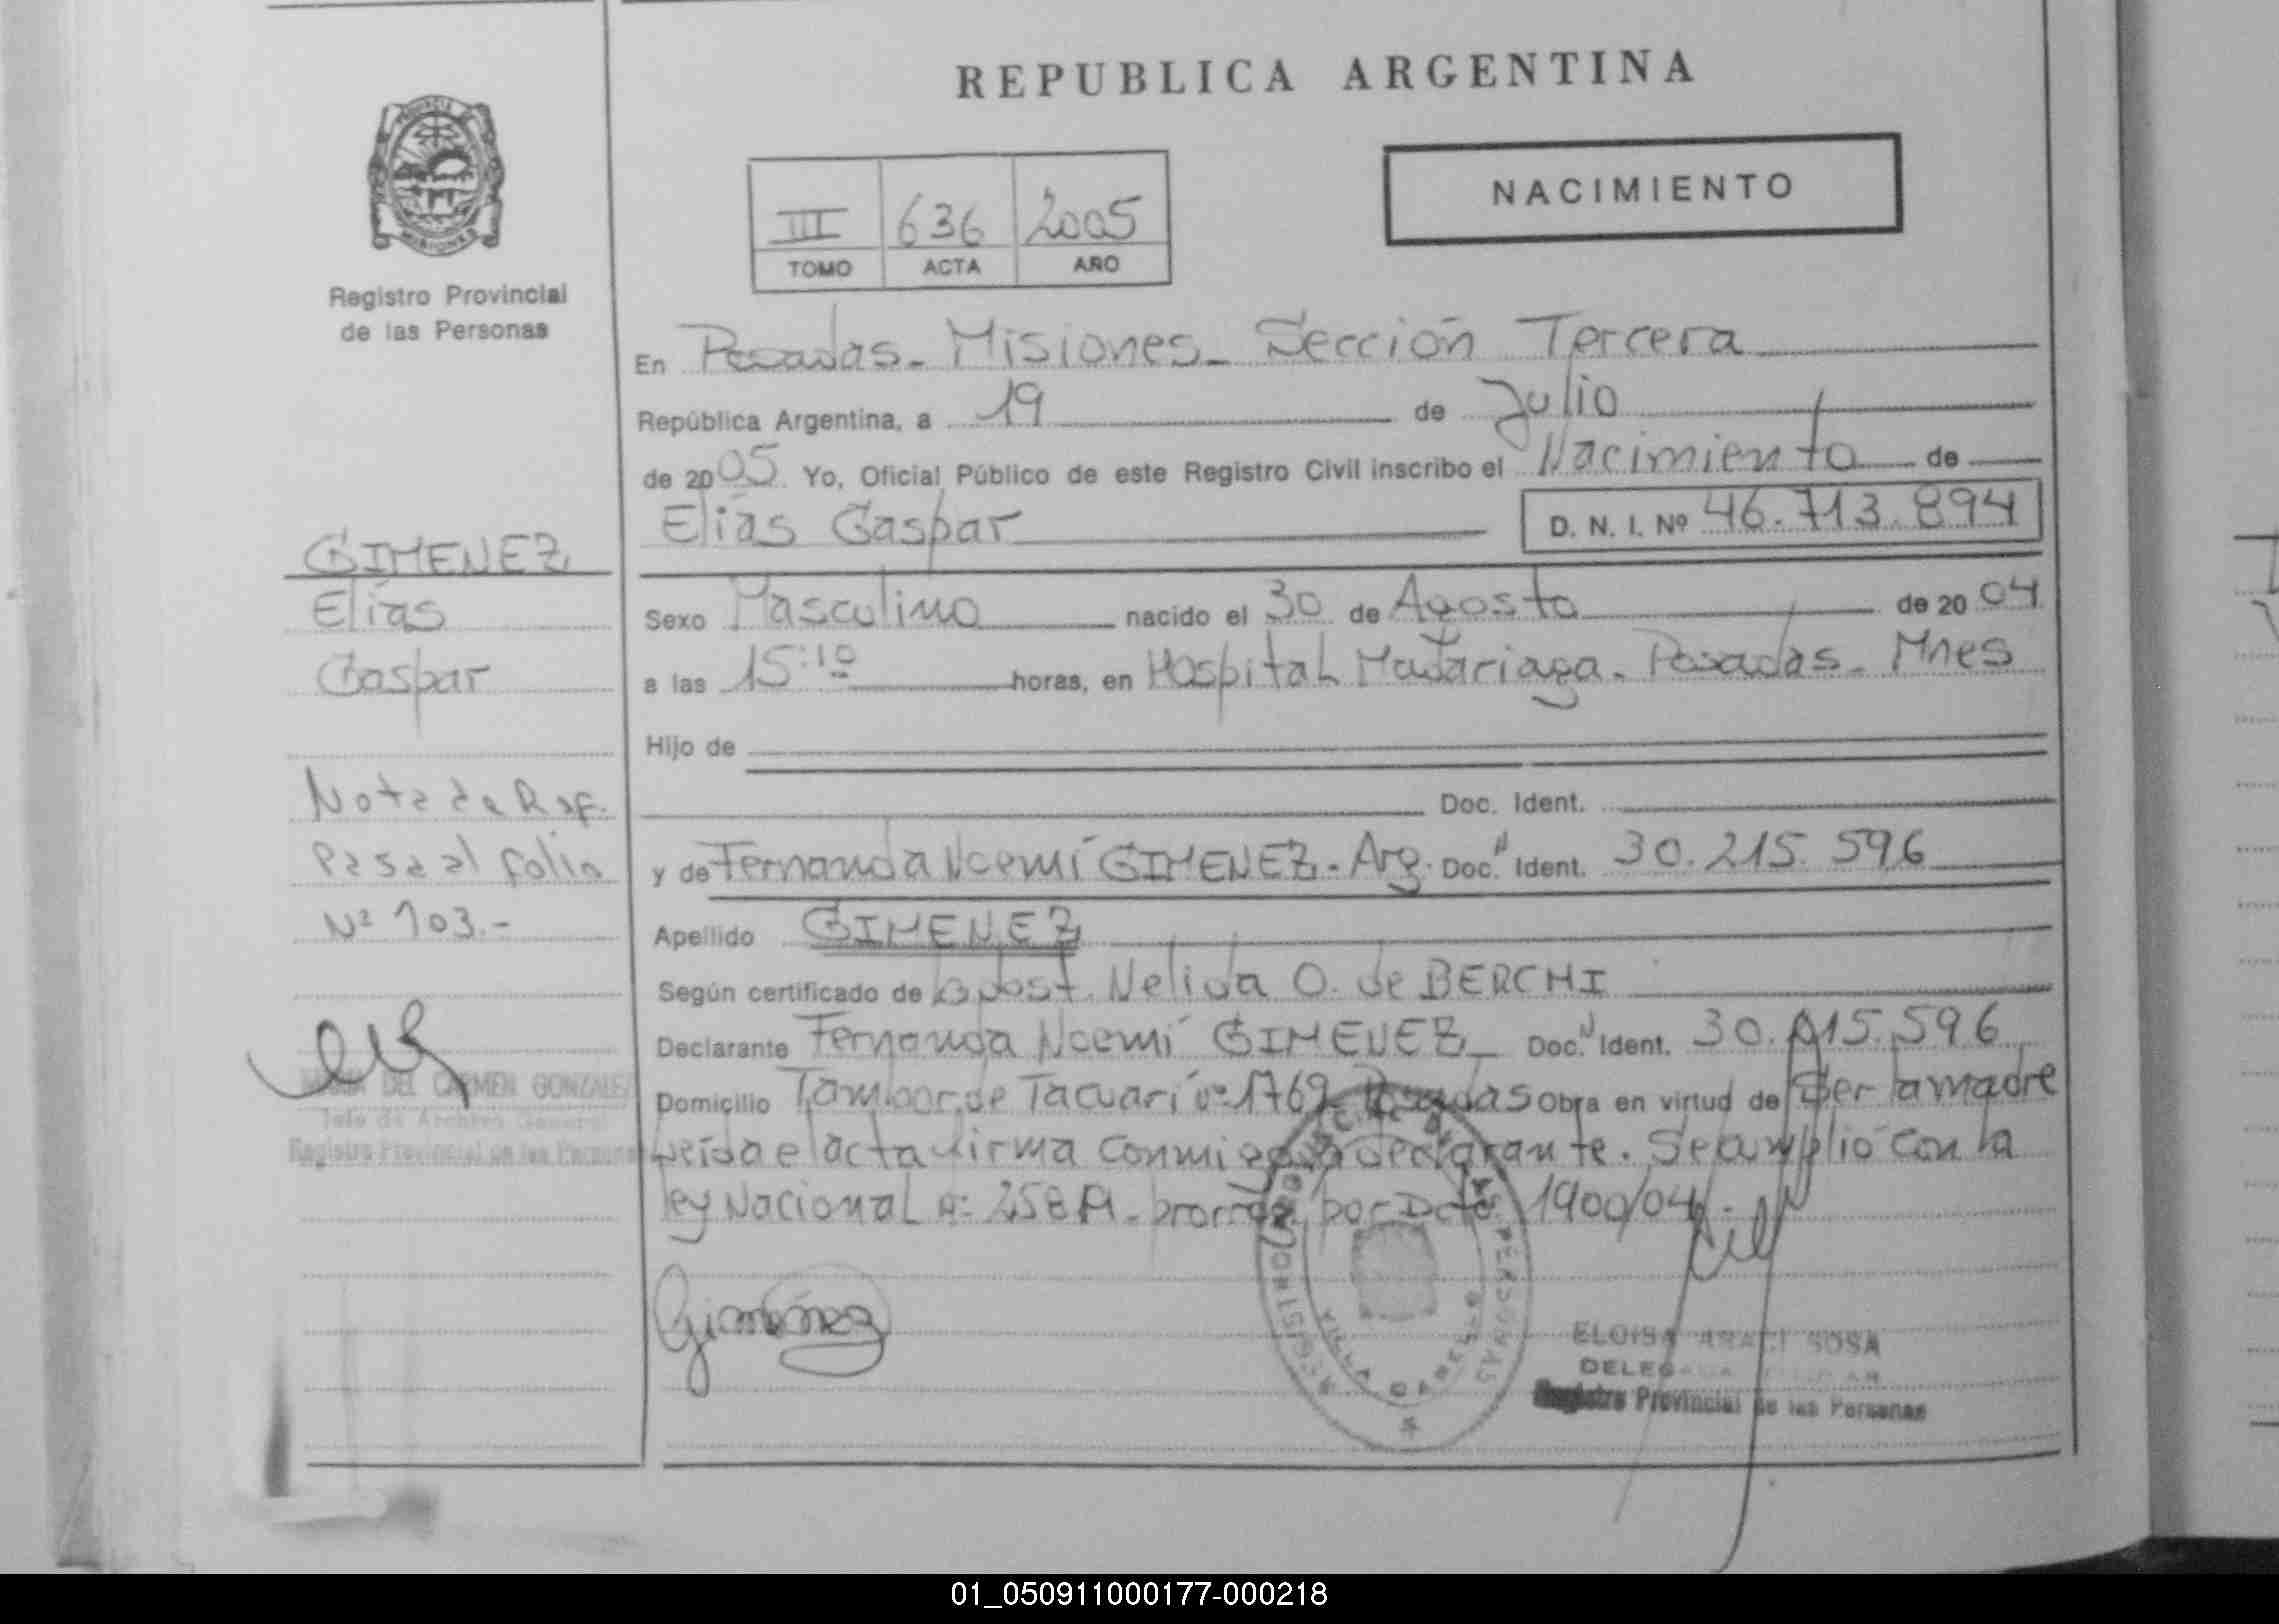 REPUBLICA ARGENTINA
PROVINCIA DE MISIONES
NACIMIENTO
III 636 2005
TOMO ACTA AÑO
Registro Provincial
de las Personas
En Posadas - Misiones - Sección Tercera
República Argentina, a 19 de Julio
de 2005 Yo, Oficial Público de este Registro Civil inscribo el Nacimiento de
Elías Gaspar D. N. I. Nº 46.713.894
GIMENEZ
Elías
Gaspar
Sexo Masculino nacido el 30 de Agosto de 2004
a las 15:10 horas, en Hospital Madariaga - Posadas - Mnes
Hijo de
Doc. Ident.
Nota de Ref.
Pasa al folio
Nº 103.-
y de Fernanda Noemí GIMENEZ - Arg. Doc. N Ident. 30.215.596
Apellido GIMENEZ
Según certificado de Obst. Nelida O. de BERCHI
Declarante Fernanda Noemí GIMENEZ - Doc. N Ident. 30.215.596
Domicilio Tambor de Tacuarí nº 1769 Posadas Obra en virtud de Ser la madre
Leída el acta firma conmigo la declarante. Se cumplió con la
ley Nacional nº 25819 - prorrog. por Dcto. 1900/04.-
MARIA DEL CARMEN GONZALEZ
Jefe de Archivo General
Registro Provincial de las Personas
Gimenez
REGISTRO PERSONAS
VILLA CABELLO
ELOISA ARACI SOSA
Registro Provincial de las Personas
01_050911000177-000218